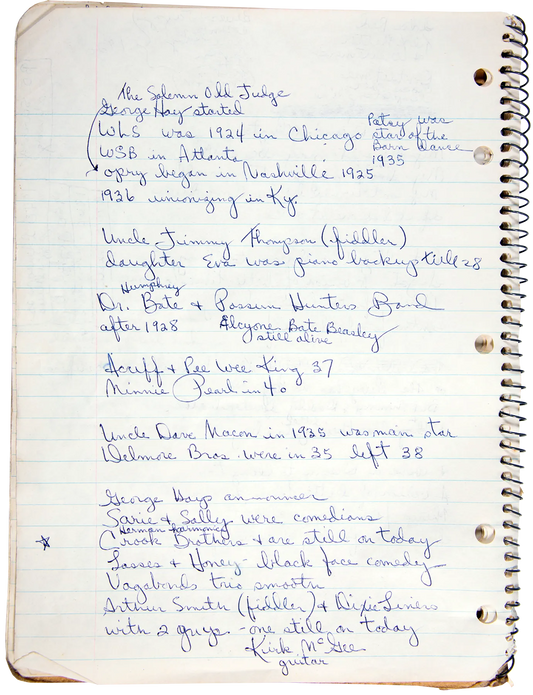 The Solemn Old Judge
George Hay started
WLS was 1924 in Chicago
Patsy was
star of the
Barn Dance
1935
WSB in Atlanta
opry began in Nashville 1925
1936 unionizing in Ky.
Uncle Jimmy Thompson (fiddler)
daughter Eva was piano backup till 28
Humphrey
Dr. Bate & Possum Hunters Band
after 1928 Alcyone Bate Beasley
still alive
Acuff & Pee Wee King 37
Minnie Pearl in 40
Uncle Dave Macon in 1935 was main star
Delmore Bros. were in 35 left 38
George Hays announcer
Sarie & Sally were comedians
Herman harmonica
Crook Brothers & are still on today
Lasses & Honey - black face comedy
Vagabonds trio smooth
Arthur Smith (fiddler) & Dixie Liners
with 2 guys - one still on today
Kirk McGee
guitar